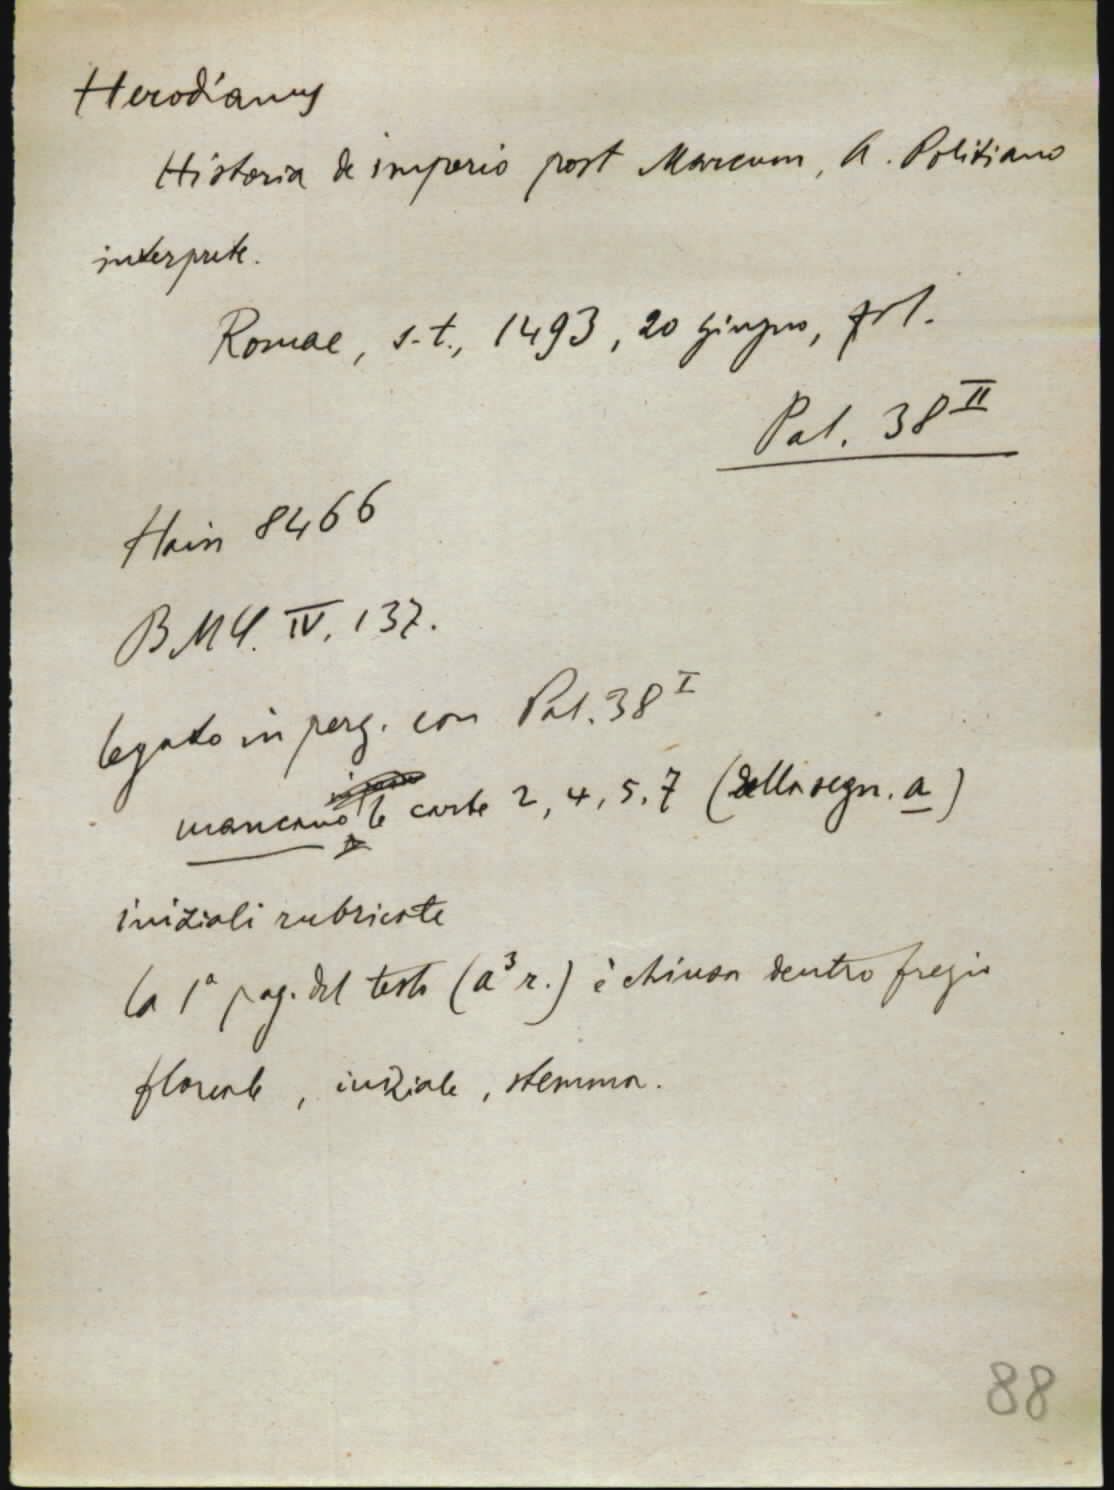 Herodianus
Historia de imperio post Marcum, A. Politiano
interprete.
Romae, s.t., 1493, 20 giugno, fol.
Pal. 38 II
Hain 8466
BMC. IV, 137.
legato in perg. con Pal. 38 I
mancano le carte 2, 4, 5, 7 (della segn. a)
iniziali rubricate
la 1ª pag. del testo (a³ r.) è chiusa dentro fregio
floreale, iniziale, stemma.
88